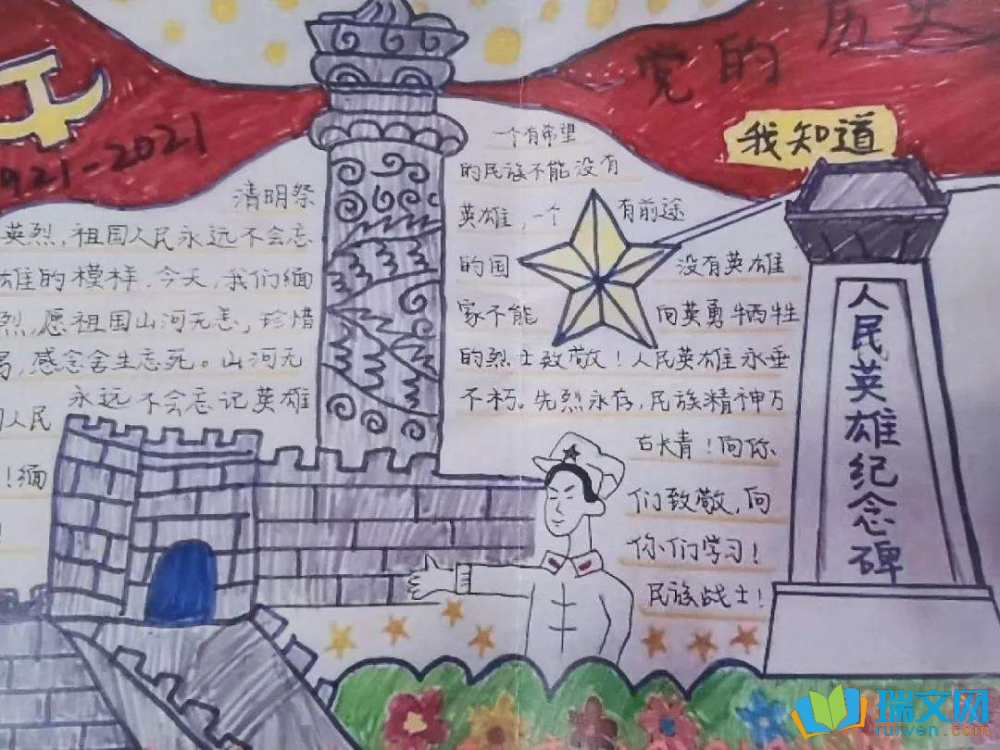 党的历史
我知道
1921-2021
清明祭
英烈,祖国人民永远不会忘
雄的模样。今天,我们缅
烈,愿祖国山河无恙,珍惜
易,感念舍生忘死。山河无
永远不会忘记英雄
人民
!缅
一个有希望
的民族不能没有
英雄,一个 有前途
的国 没有英雄
家不能 向英勇牺牲
的烈士致敬!人民英雄永垂
不朽。先烈永存,民族精神万
古长青!向你
们致敬,向
你们学习!
民族战士!
人民英雄纪念碑
瑞文网
ruiwen.com